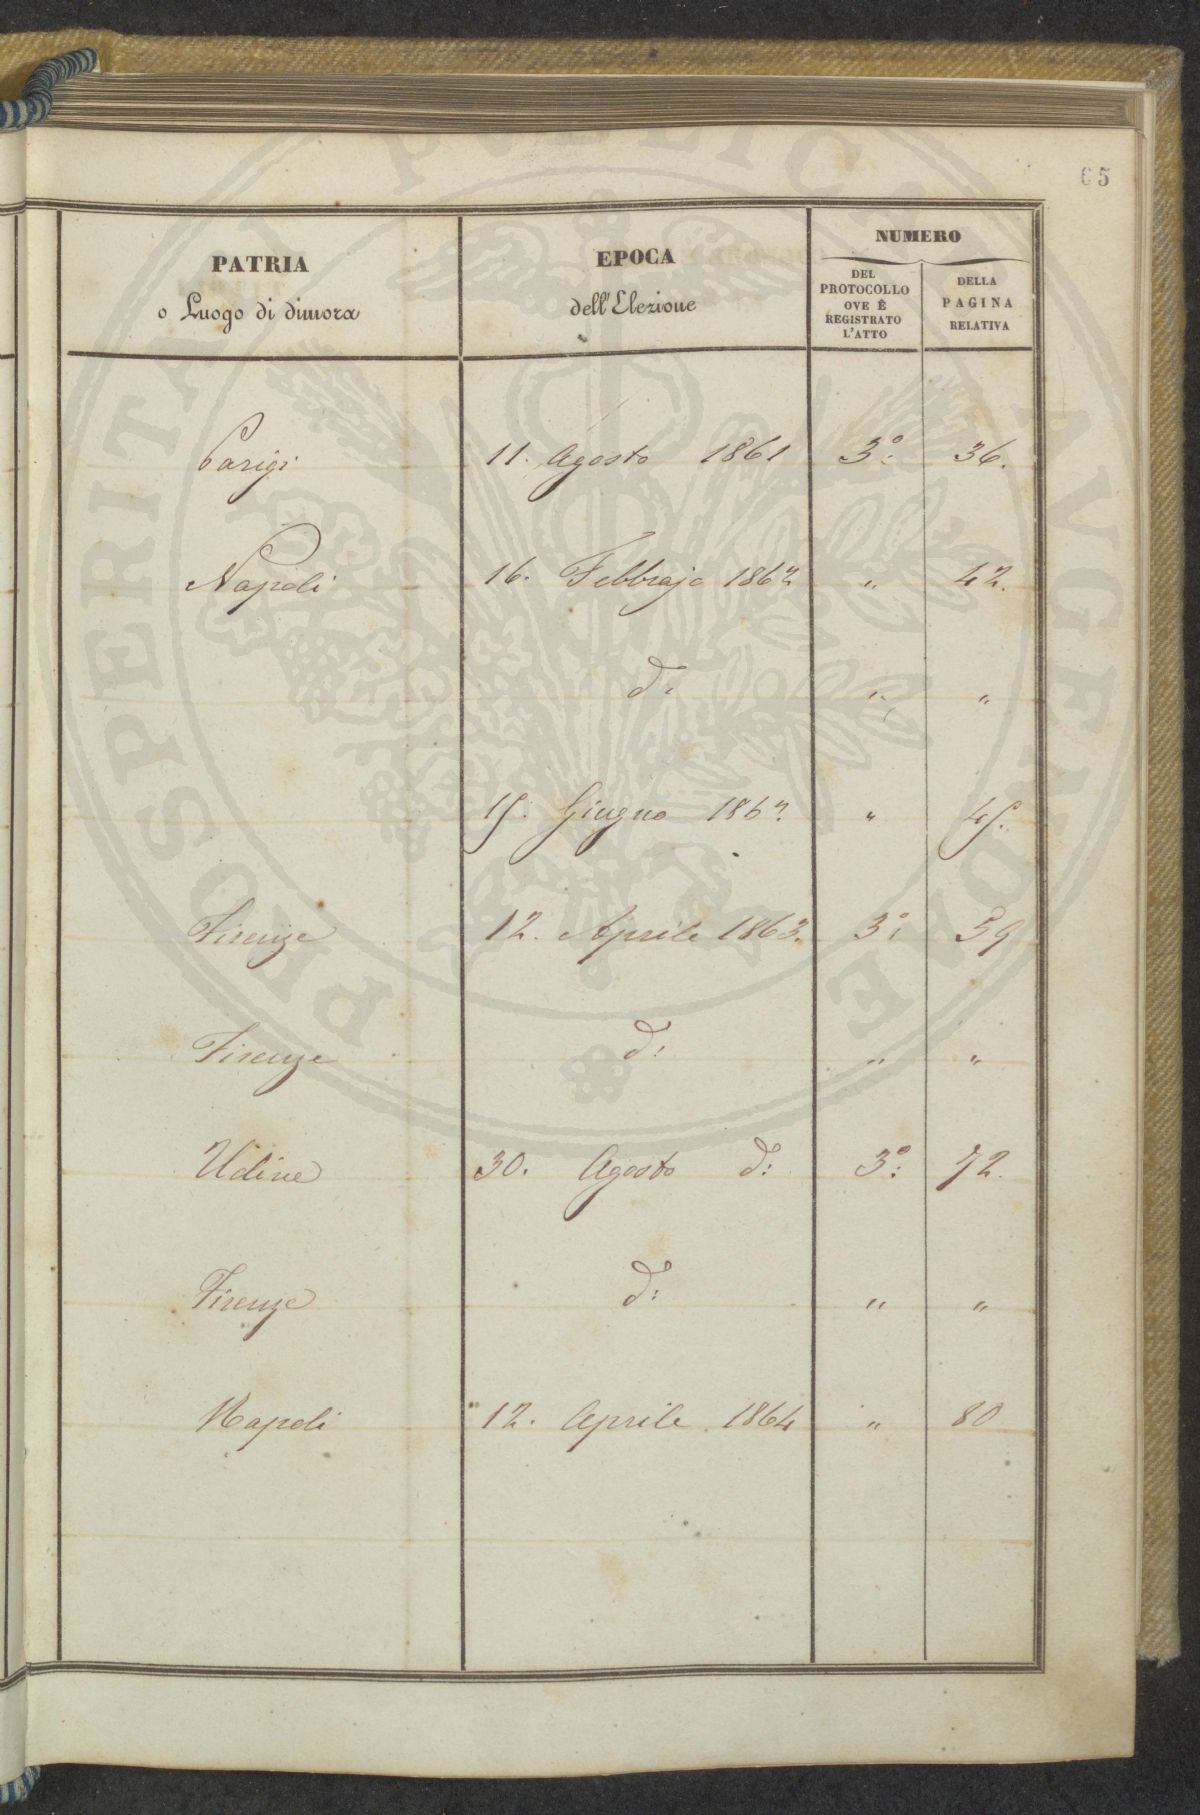 65
PATRIA
o Luogo di dimora
EPOCA
dell'Elezione
NUMERO
DEL PROTOCOLLO OVE È REGISTRATO L'ATTO
DELLA PAGINA RELATIVA
Parigi 11. Agosto 1861 3º: 36.
Napoli 16. Febbrajo 1862 " 42.
d: " "
15. Giugno 1862. " 45.
Firenze 12. Aprile 1863. 3º: 59
Firenze d: " "
Udine 30. Agosto d: 3º: 72.
Firenze d: " "
Napoli 12. Aprile 1864 " 80
PROSPERITATI PUBLICAE AVGENDAE